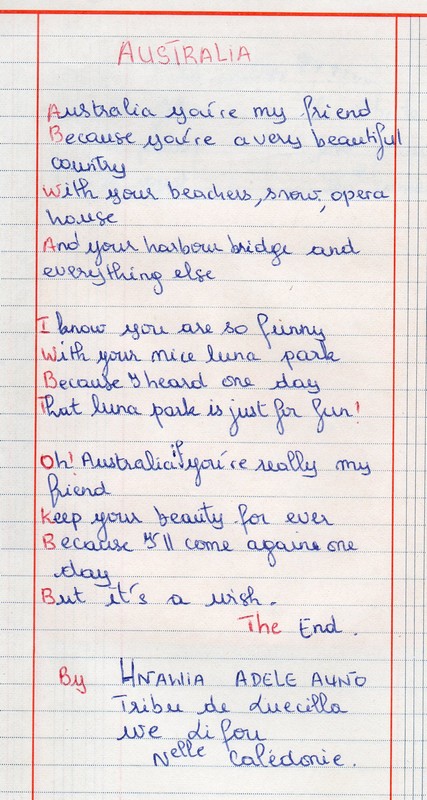 AUSTRALIA
Australia you're my friend
Because you're a very beautiful
country
With your beachers, snow, opera
house
And your harbour bridge and
everything else
I know you are so funny
With your nice luna park
Because I heard one day
That luna park is just for fun!
Oh! Australia if you're really my
friend
Keep your beauty for ever
Because I'll come againe one
day
But it's a wish.
The End.
By HNAWIA ADELE AUNO
Tribu de Luecilla
We Lifou
Nelle Calédonie.